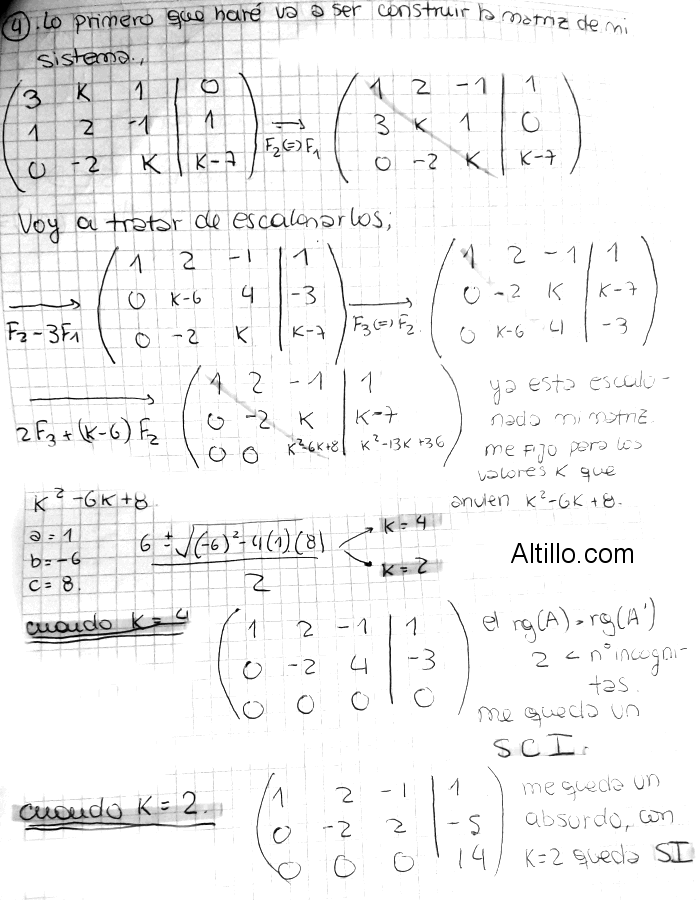 4). Lo primero que haré va a ser construir la matriz de mi
sistema.,
3 K 1 | 0
1 2 -1 | 1
0 -2 K | K-7
F₂(=)F₁
1 2 -1 | 1
3 K 1 | 0
0 -2 K | K-7
Voy a tratar de escalonarlos;
F₂-3F₁
1 2 -1 | 1
0 K-6 4 | -3
0 -2 K | K-7
F₃(=)F₂.
1 2 -1 | 1
0 -2 K | K-7
0 K-6 4 | -3
2F₃+(K-6)F₂
1 2 -1 | 1
0 -2 K | K-7
0 0 K²-6K+8 | K²-13K+36
ya esta escalo-
nada mi matriz.
me fijo para los
valores K que
anulen K²-6K+8.
K²-6K+8.
a=1
b=-6
c=8.
6 ± √(-6)²-4(1)(8)
2
K=4
K=2
Altillo.com
cuando K=4
1 2 -1 | 1
0 -2 4 | -3
0 0 0 | 0
el rg(A)=rg(A')
2 < n° incogni-
tas.
me queda un
SCI.
cuando K=2.
1 2 -1 | 1
0 -2 2 | -5
0 0 0 | 14
me queda un
absurdo, con
K=2 queda SI